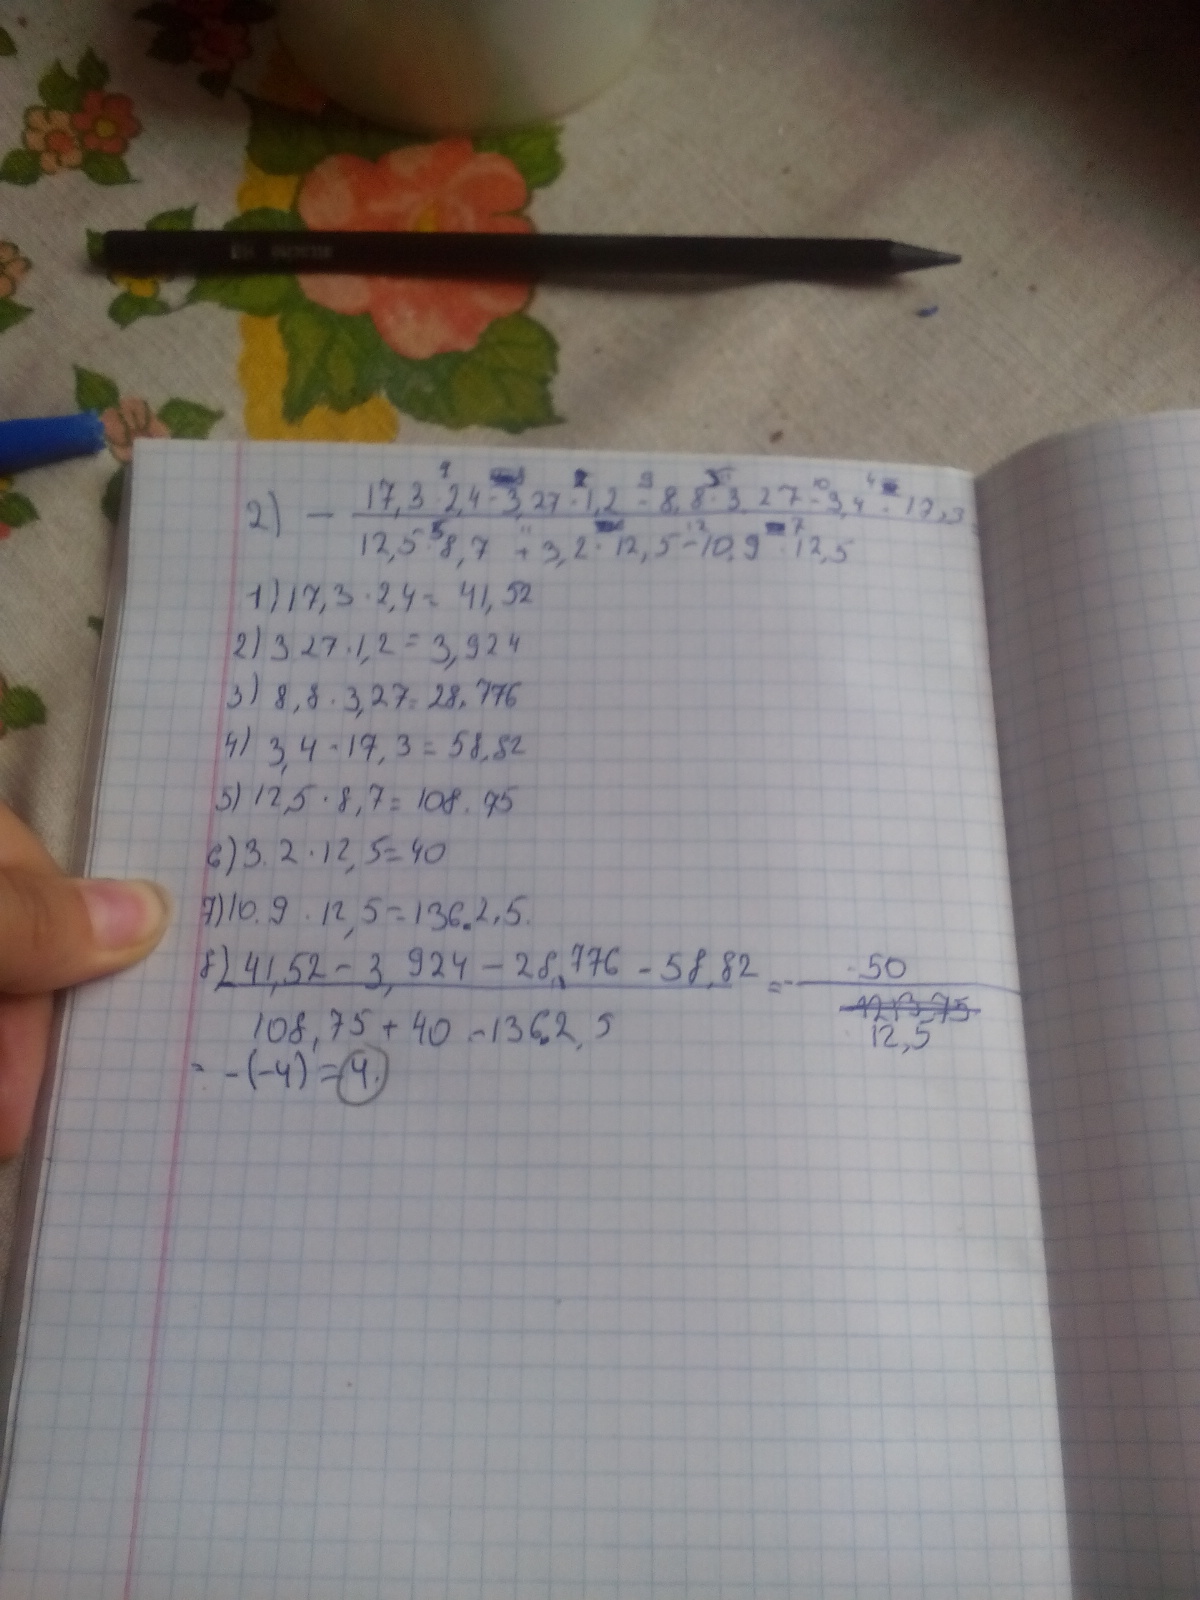 2) - 17,3·2,4-3,27·1,2-8,8·3,27-3,4·17,3
12,5·8,7+3,2·12,5-10,9·12,5
1) 17,3·2,4= 41,52
2) 3 27·1,2=3,924
3) 8,8·3,27=28.776
4) 3,4·17,3=58,82
5) 12,5·8,7=108.75
6) 3.2·12,5=40
7) 10.9·12,5=136.2,5.
8) 41,52-3,924-28,776-58,82 =- -50
108,75+40-136.2,5 12,5
= -(-4)=4.